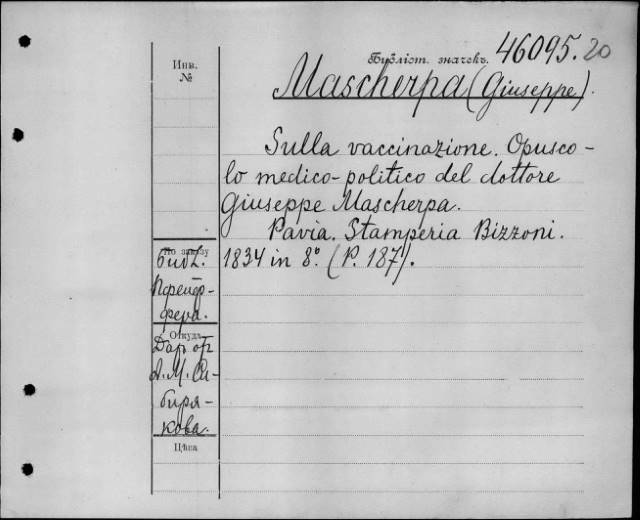 Бублiот. значекъ. 46095.20
Инв.
№
Mascherpa (Giuseppe).
Sulla vaccinazione. Opusco-
lo medico-politico del dottore
Giuseppe Mascherpa.
Pavia. Stamperia Bizzoni.
1834 in 8º. (P. 187).
По заказу
Библ.
Пфейф-
фера.
Откуда
Дар от
А. М. Си-
биря-
кова.
Цѣна